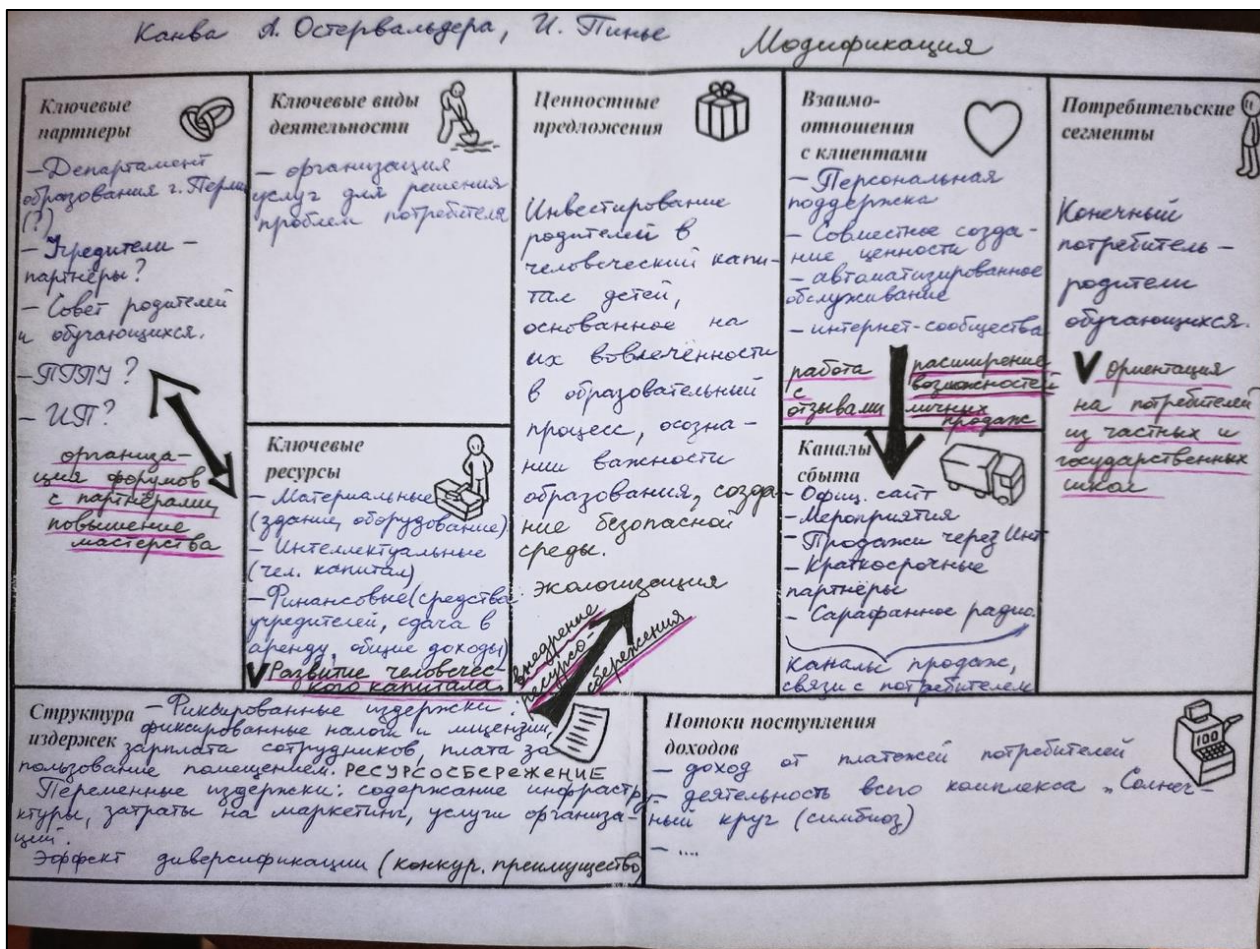 Канва А. Остервальдера, И. Пинье
Модификация
Ключевые
партнеры
– Департамент
образования г. Перми
(?)
– Учредители –
партнёры?
– Совет родителей
и обучающихся.
– ПГПУ?
– ИП?
организа-
ция форумов
с партнёрами,
повышение
мастерства
Ключевые виды
деятельности
– организация
услуг для решения
проблем потребителя
Ключевые
ресурсы
– Материальные
(здание, оборудование)
– Интеллектуальные
(чел. капитал)
– Финансовые (средства
учредителей, сдача в
аренду, общие доходы)
V Развитие человечес-
кого капитала.
Ценностные
предложения
Инвестирование
родителей в
человеческий капи-
тал детей,
основанное на
их вовлечённости
в образовательный
процесс, осозна-
нии важности
образования, созда-
ние безопасной
среды.
Экологизация
внедрение
ресурсо-
сбережения
Взаимо-
отношения
с клиентами
– Персональная
поддержка
– Совместное созда-
ние ценности
– автоматизированное
обслуживание
– интернет-сообщества
работа
с
отзывами
расширение
возможностей
личных
продаж
Каналы
сбыта
– Офиц. сайт
– Мероприятия
– Продажи через Инт
– Краткосрочные
партнёры
– Сарафанное радио.
Каналы продаж,
связи с потребителем
Потребительские
сегменты
Конечный
потребитель –
родители
обучающихся.
V ориентация
на потребителя
из частных и
государственных
школ
Структура
издержек
– Фиксированные издержки:
фиксированные налоги и лицензии,
зарплата сотрудников, плата за
пользование помещением. РЕСУРСОСБЕРЕЖЕНИЕ
Переменные издержки: содержание инфрастру-
ктуры, затраты на маркетинг, услуги организа-
ций.
Эффект диверсификации (конкур. преимущество)
Потоки поступления
доходов
– доход от платежей потребителей
– деятельность всего комплекса „Солнеч-
ный круг (симбиоз)
– ....